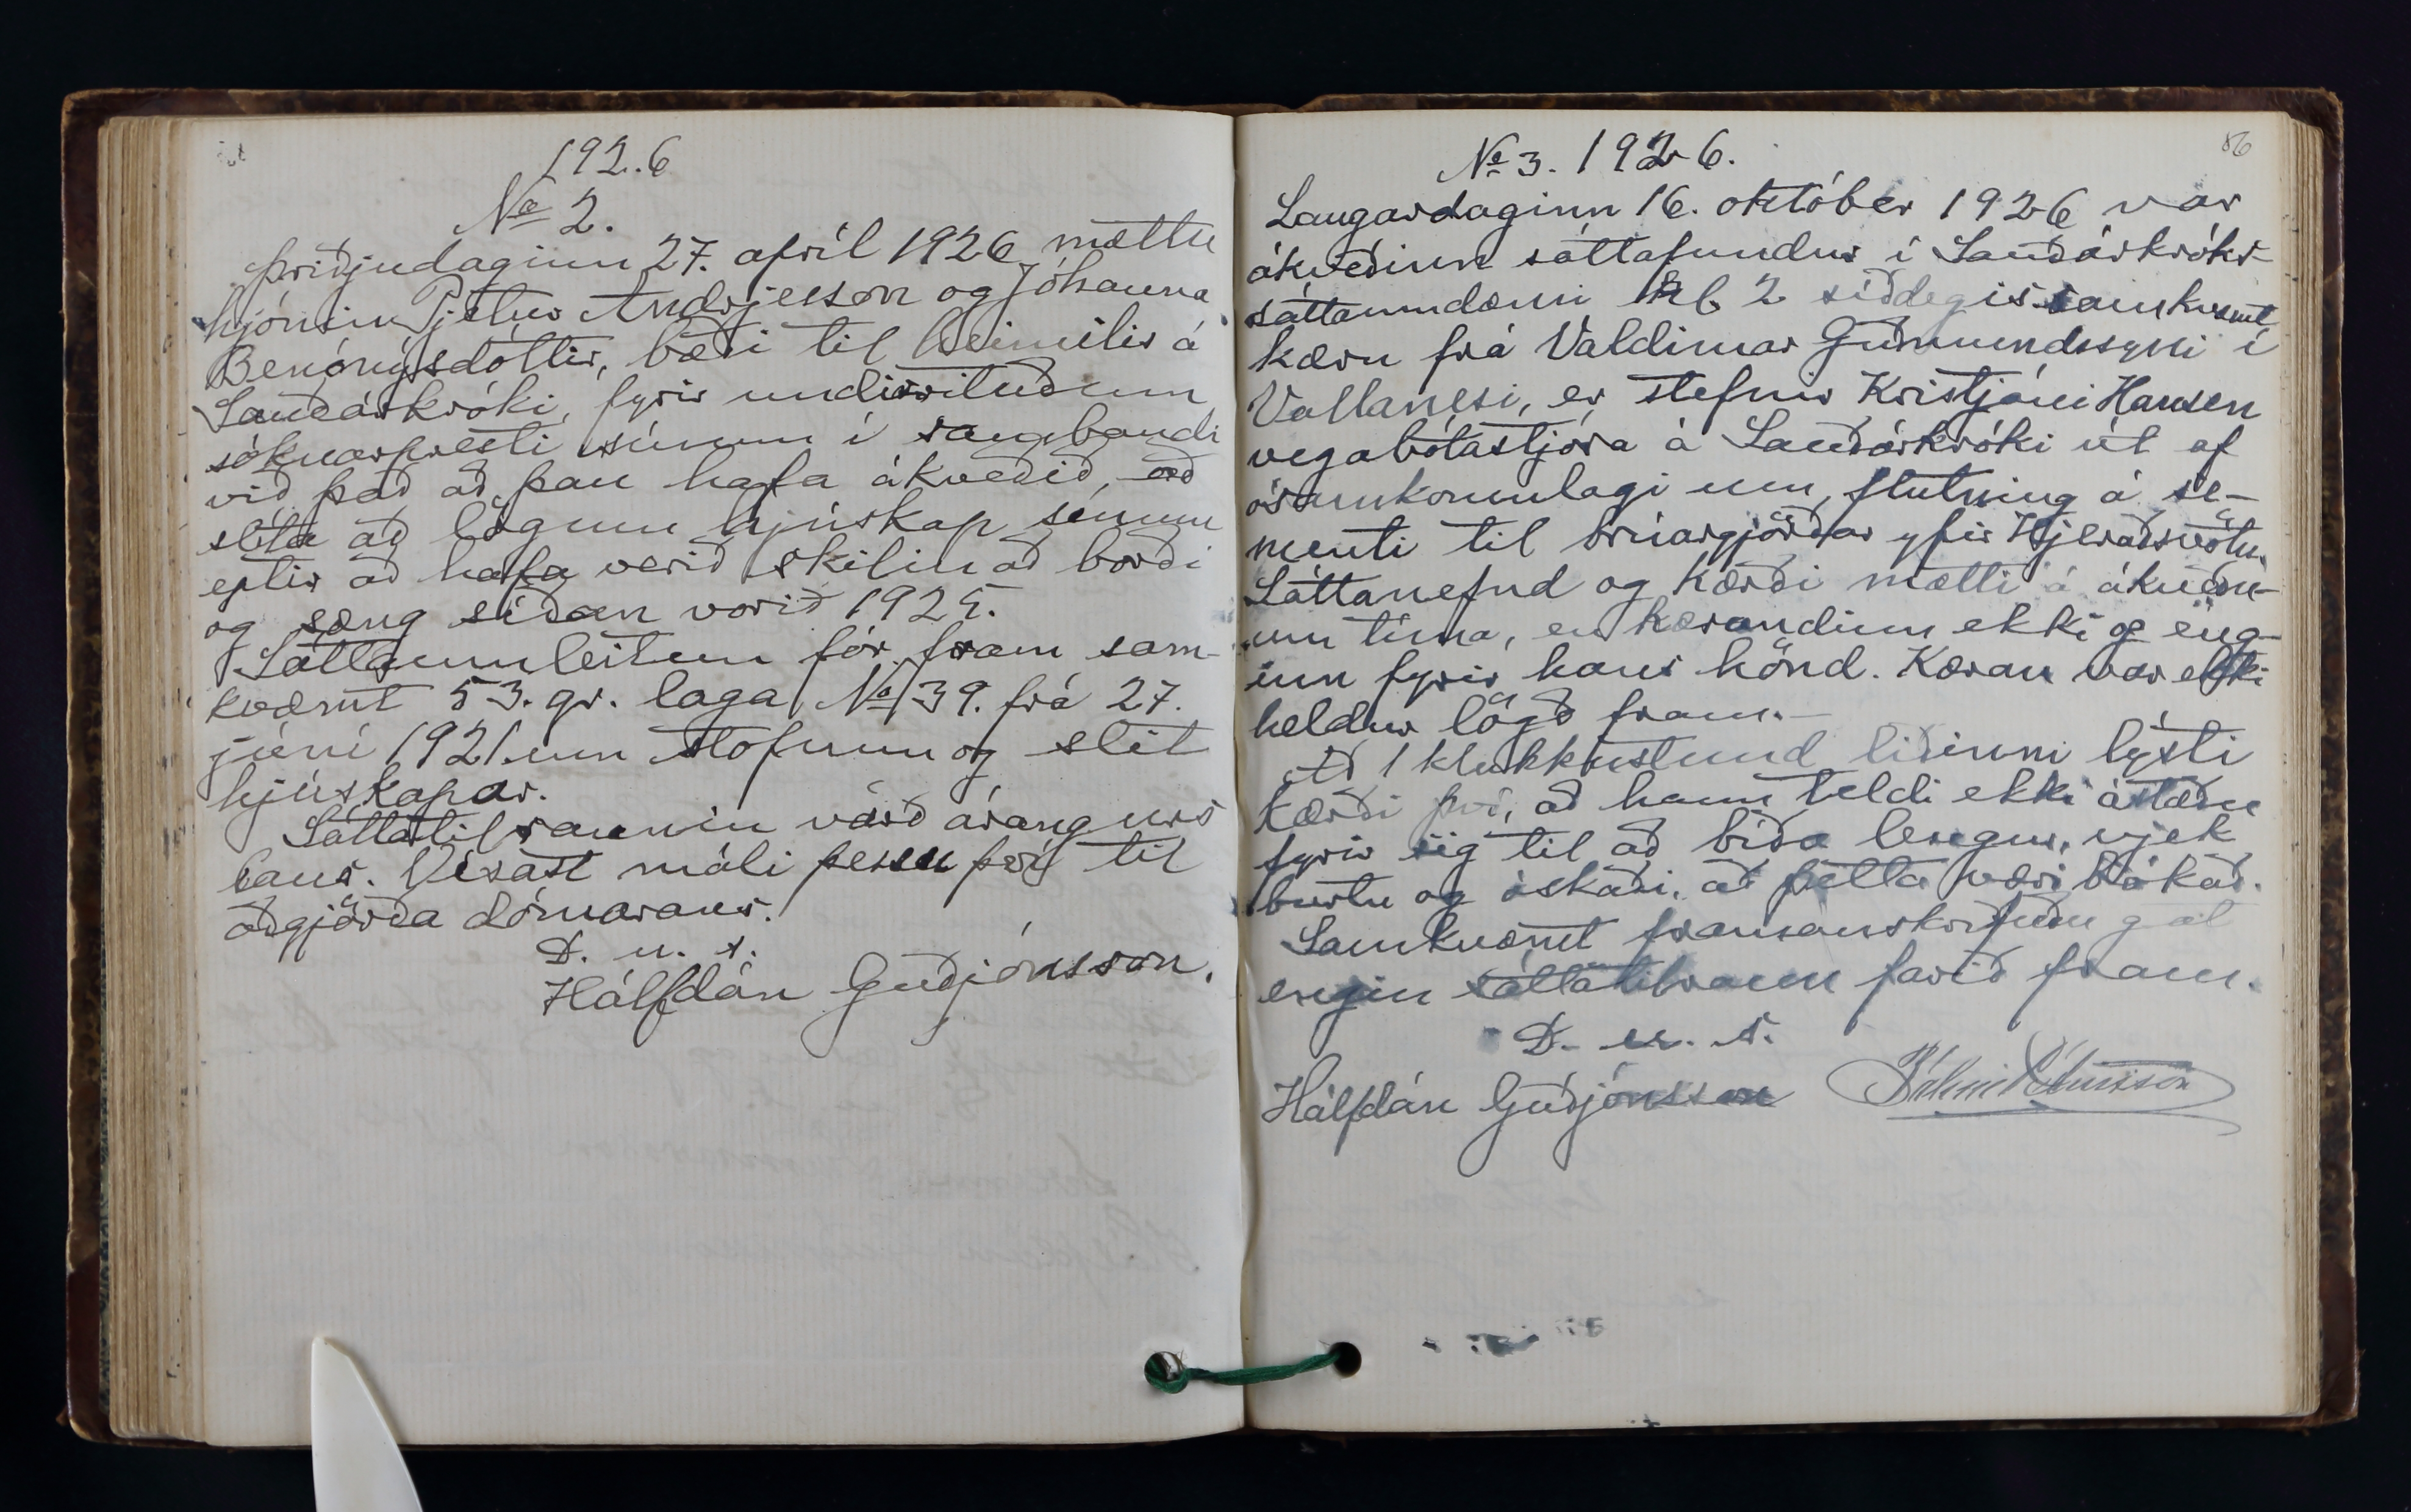 1926
No 2.
Þriðjudaginn 27. apríl 1926 mættu
hjónin Pjetur Andrjesson og Jóhanna
Benónýsdóttir, bæði til heimilis á
Sauðárkróki, fyrir undirrituðum
sóknarpresti sínum í sambandi
við það að þau hafa ákveðið, að
slíta að lögum hjúskap sínum
eptir að hafa verið skilin að borði
og sæng síðan vorið 1925.
Sáttaumleitun fór fram sam-
kvæmt 53. gr. laga No 39. frá 27.
júní 1921 um stofnun og slit
hjúskapar.
Sáttatilraunin varð árangurs
laus. Vísast máli þessu því til
aðgjörða dómarans.
D. u. s.
Hálfdán Guðjónsson.
86
No 3. 1926.
Laugardaginn 16. október 1926 var
ákveðinn sáttafundur í Sauðárkróks-
sáttaumdæmi kl 2 síðdegis samkvæmt
kæru frá Valdimar Guðmundssyni í
Vallanesi, er stefnir Kristjáni Hansen
vegabótastjóra á Sauðárkróki út af
ósamkomulagi um flutning á se-
menti til brúargjörðar yfir Hjeraðsvötn.
Sáttanefnd og kærði mætti á ákveðn-
um tíma, en kærandinn ekki og eng-
inn fyrir hans hönd. Kæran var ekki
heldur lögð fram.-
Að 1 klukkustund liðinni lýsti
kærði því, að hann teldi ekki ástæðu
fyrir sig til að bíða lengur, vjek
burtu og óskaði, að þetta væri bókað.
Samkvæmt framanskrifuðu gat
engin sáttatilraun farið fram.
D. u. s.
Hálfdán Guðjónsson